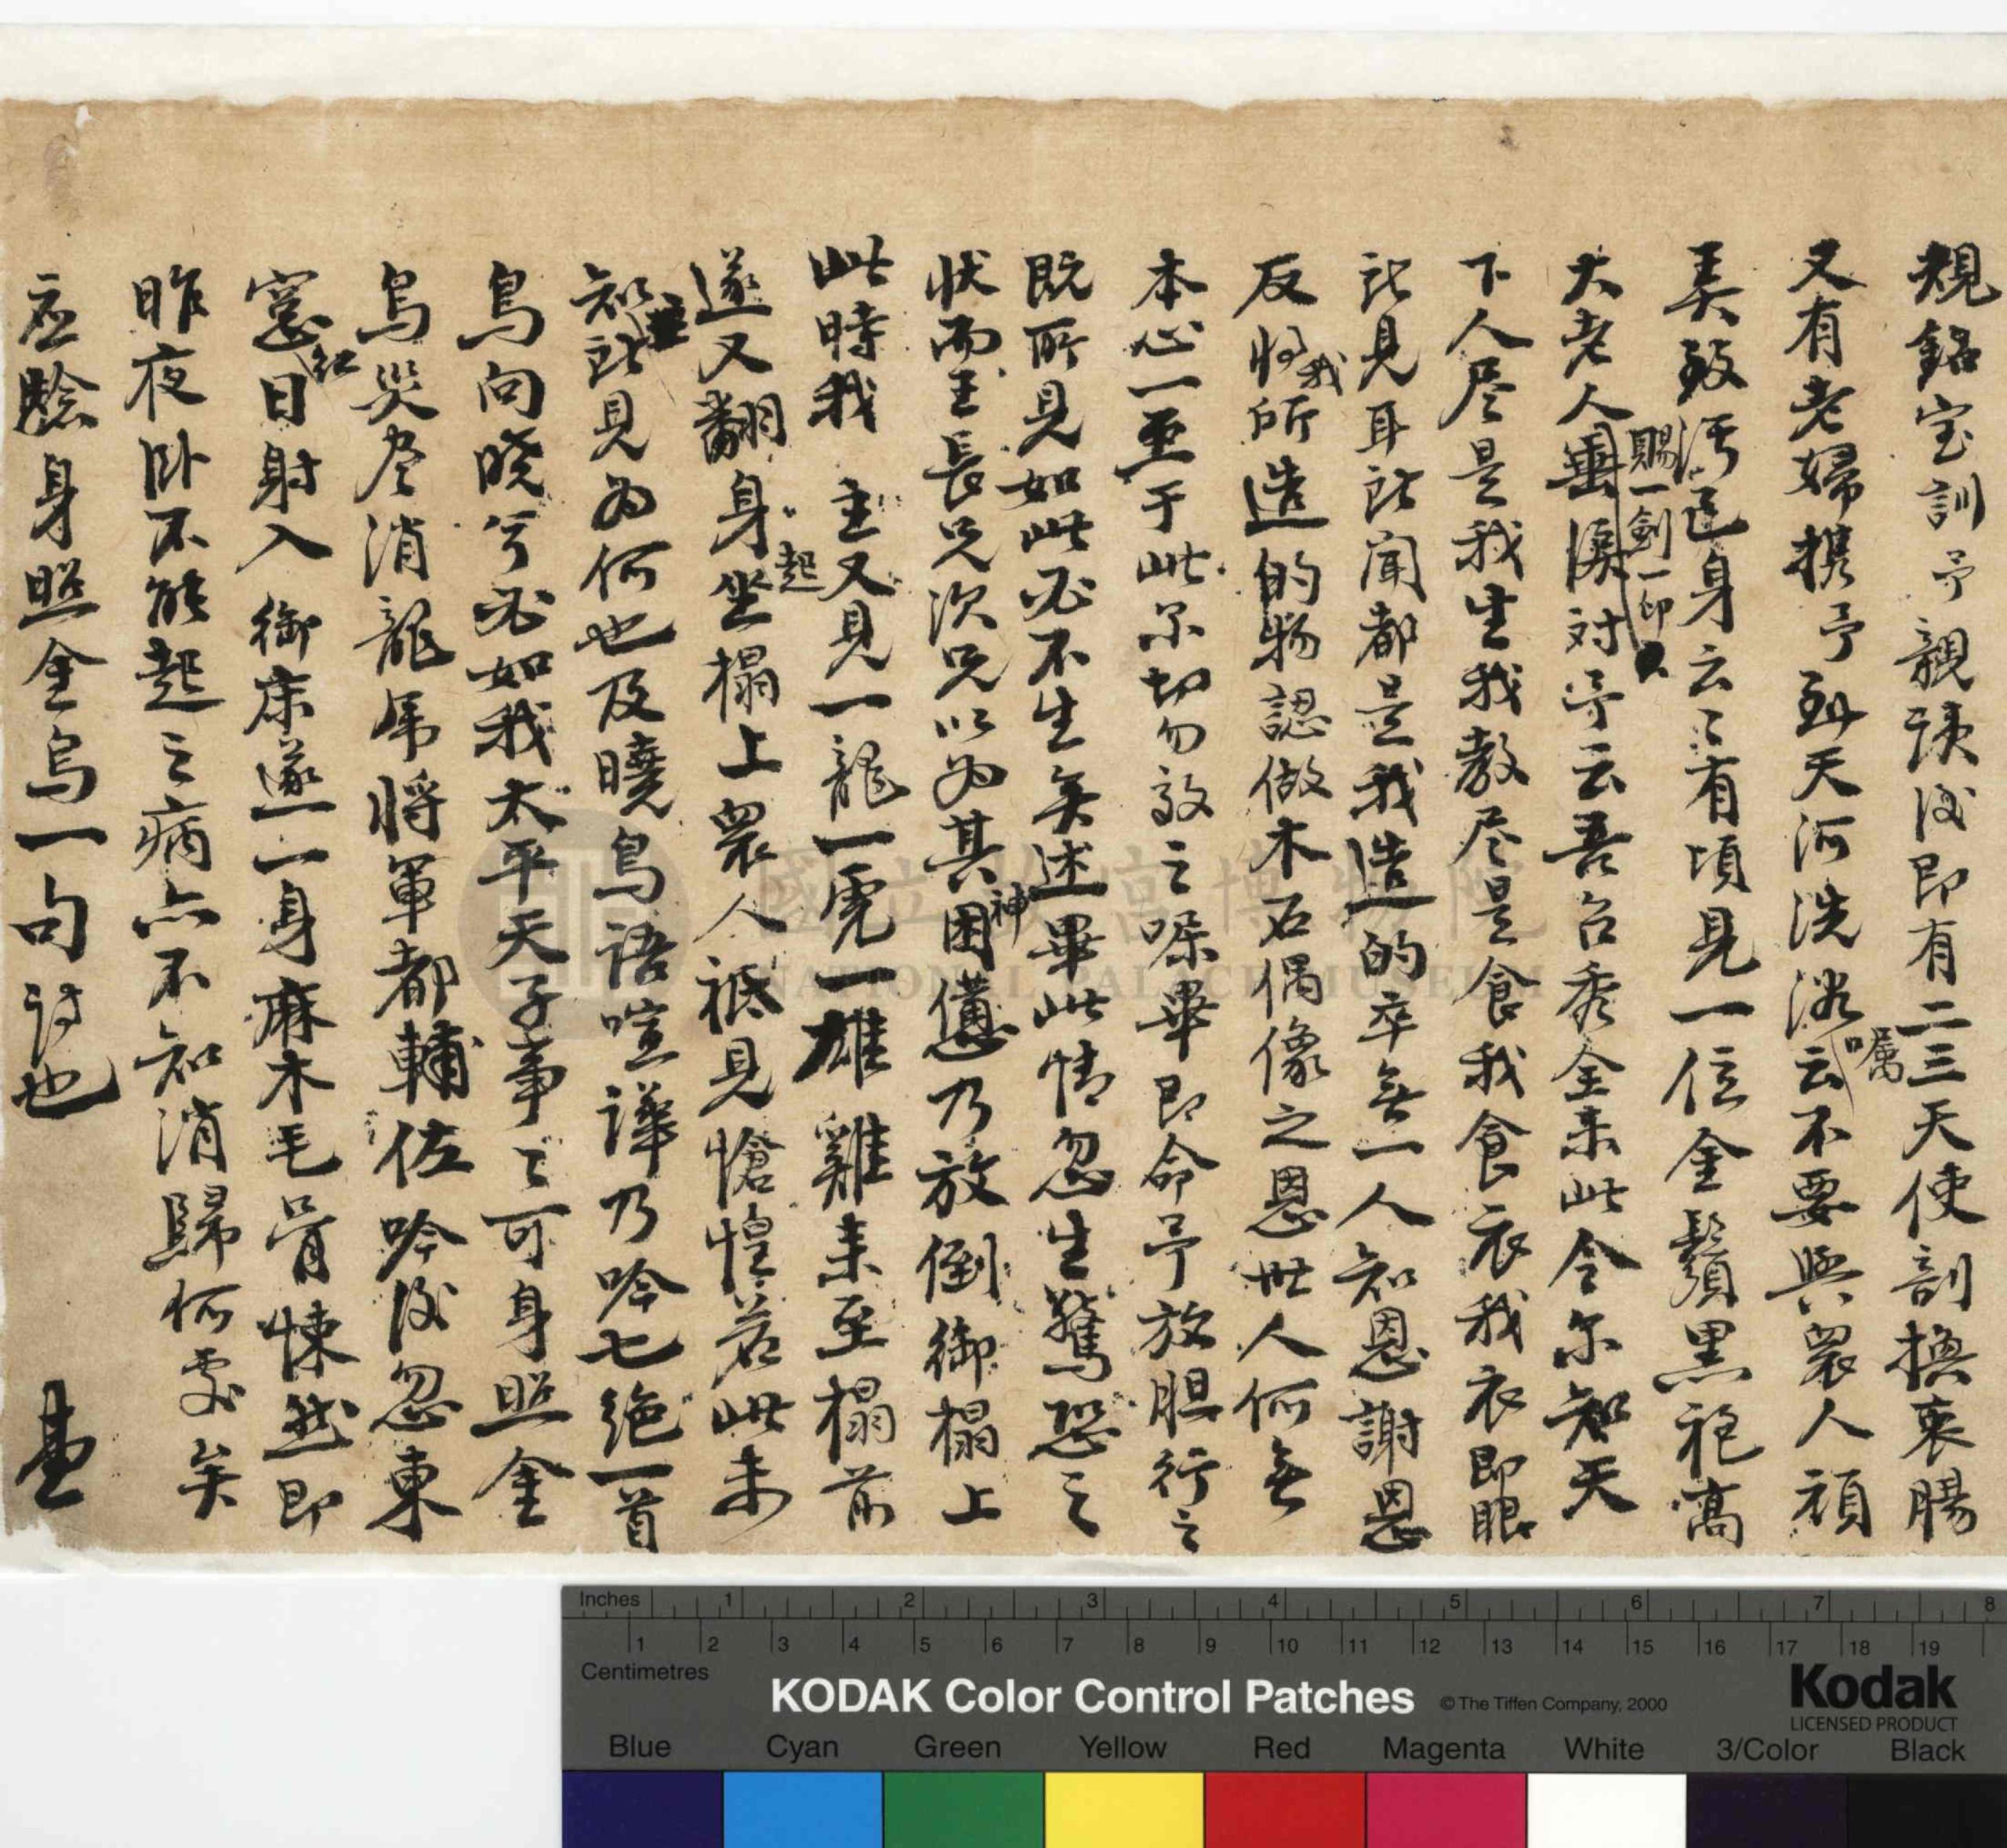 規銘宝訓予親読后即有二三天使剖換衷腸
又有老婦携予到天河洗浴囑云不要與眾人頑
美致污這身云々有頃見一位金鬚黑袍高
大老人垂淚賜一劍一印対予云吾召秀全来此令尔知天
下人尽是我生我教尽是食我食衣我衣即眼
所見耳所聞都是我造的卒無一人知恩謝恩
反將我所造的物認做木石偶像之恩世人何無
本心一至于此尔切勿效之嘱畢即命予放胆行之
既所見如此必不生矣述畢此情忽生驚恐之
状而王長兄次兄以为其神困憊乃放倒御榻上
此時我 主又見一龍一虎一雄雞来至榻前
遂又翻身起坐榻上眾人祗見愴惶若此未
知主所見为何也及曉鳥語喧譁乃吟七絶一首
鳥向晓兮必如我太平天子事々可身照金
烏災尽消龍虎将軍都輔佐吟后忽東
窓紅日射入 御床遂一身麻木毛骨悚然即
昨夜卧不能起之病亦不知消歸何處矣
应騐身照金烏一句詩也
國立故宮博物院
NATIONAL PALACE MUSEUM
Inches 1 2 3 4 5 6 7 8
1 2 3 4 5 6 7 8 9 10 11 12 13 14 15 16 17 18 19
Centimetres
KODAK Color Control Patches © The Tiffen Company, 2000 Kodak
LICENSED PRODUCT
Blue Cyan Green Yellow Red Magenta White 3/Color Black